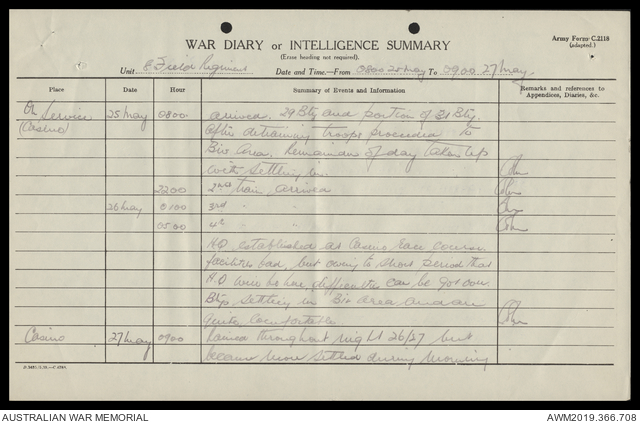 Army Form C.2118
(adapted.)
WAR DIARY or INTELLIGENCE SUMMARY
(Erase heading not required).
Unit 8 Field Regiment Date and Time.—From 0800 25 May To 0900 27 May.
Place Date Hour Summary of Events and Information Remarks and references to Appendices, Diaries, &c.
On Service 25 May 0800 arrived. 29 Bty and portion of 31 Bty.
(Casino) After detraining troops proceeded to
Biv Area. Remainder of day taken up
with settling in.
2200 2nd train arrived
26 May 0100 3rd " "
0500 4th " "
H.Q. established at Casino Race Course.
facilities bad, but owing to short period that
H.Q will be here difficulties can be got over
Btys settling in Biv area and are
quite comfortable
Casino 27 May 0900 Rained throughout night 26/27 but
became more settled during morning
AUSTRALIAN WAR MEMORIAL
AWM2019.366.708